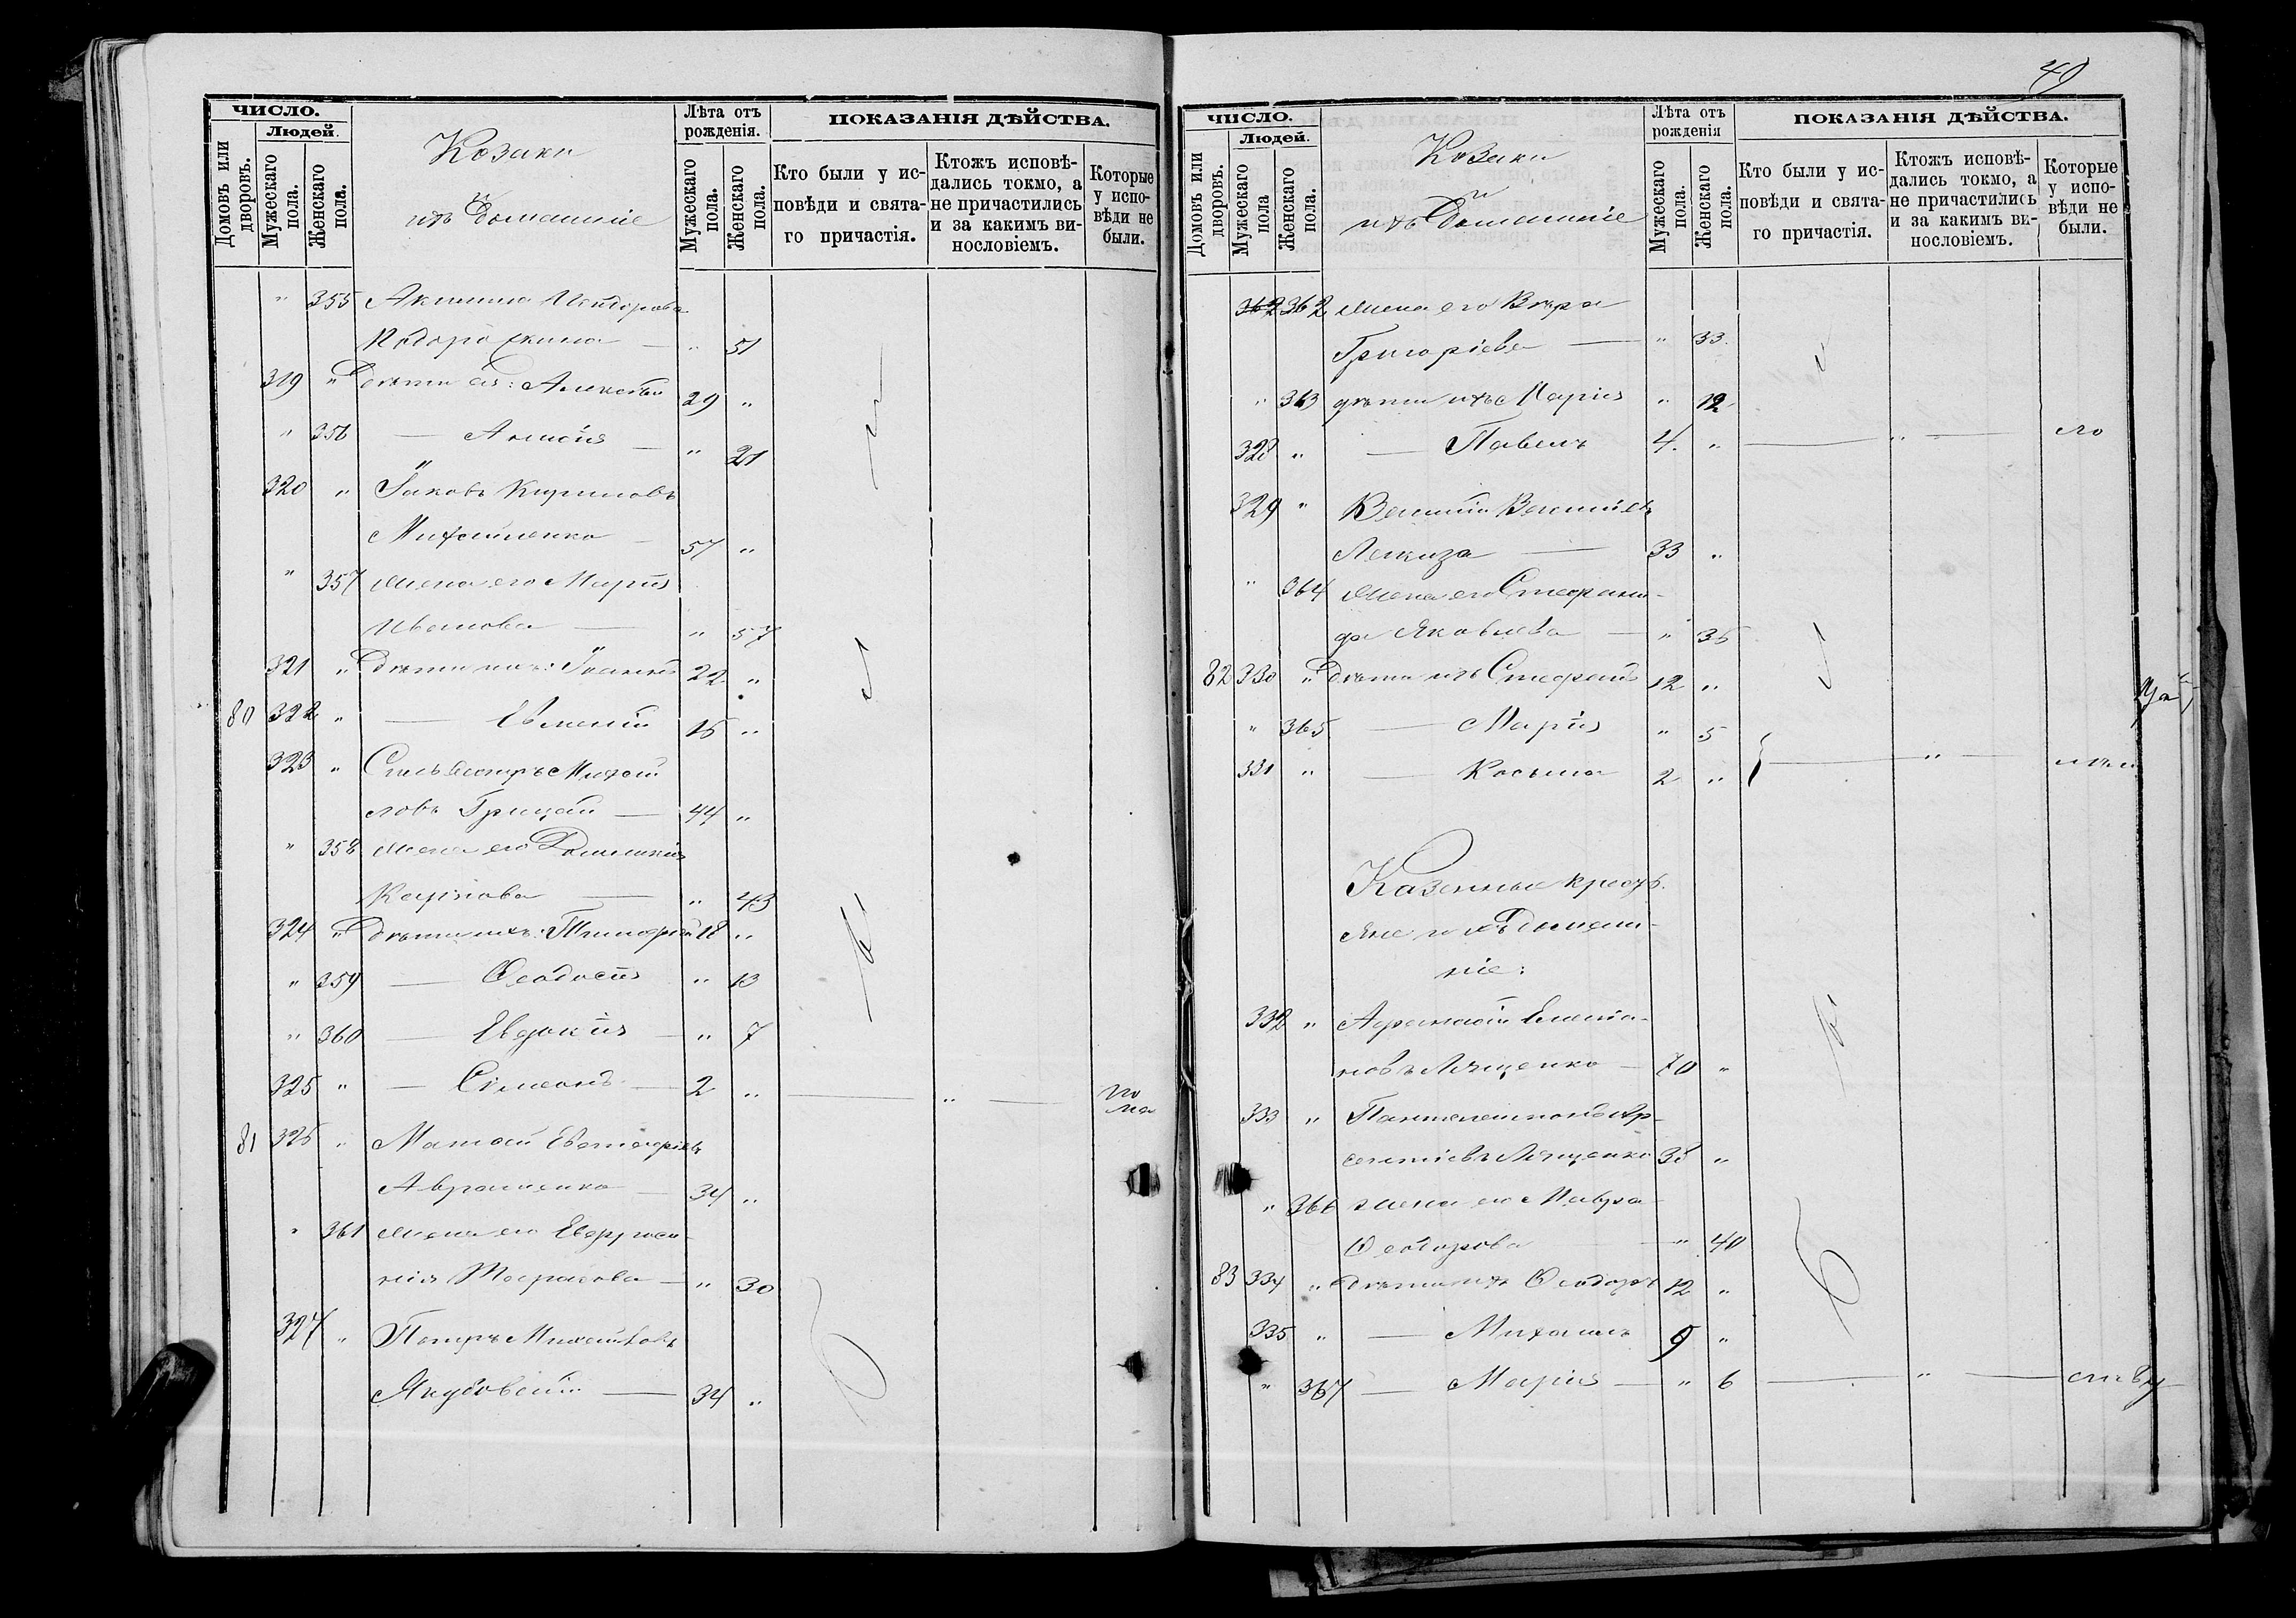 ЧИСЛО.
Людей.
Домовъ или дворовъ.
Мужескаго пола.
Женскаго пола.
Козаки
и
ихъ домашніе
Лѣта отъ рожденія.
Мужескаго пола.
Женскаго пола.
ПОКАЗАНІЯ ДѢЙСТВА.
Кто были у ис-
повѣди и свята-
го причастія.
Ктожъ исповѣ-
дались токмо, а
не причастились
и за какимъ ви-
нословіемъ.
Которые
у испо-
вѣди не
были.
" 355 Акилина
— " 51
319 " дѣти ея: Алексѣй 29 "
" 356 — Анисія — " 21
320 " Іаковъ Кириловъ
Михайленко — 57 "
" 357 жена его Марія
Иванова — " 57
321 " дѣти ихъ: Іоаннъ 22 "
80 322 " — Евменій 15 "
323 " Сильвестръ Михай
ловъ Грицай — 44 "
" 358 жена его Домникія
Карпова — " 43
324 " дѣти ихъ: Тимофей 18 "
" 359 — Ѳеодосія " 13
" 360 — Евдокія — " 7
325 " — Сімеонъ — 2 " — " — по ма
81 326 " Матѳей Евстафіевъ
Авраменко — 34 "
" 361 жена его Евфроси
нія Тарасова — " 30
327 " Петръ Михайловъ
Якубовскій — 34 "
49
ЧИСЛО.
Людей.
Домовъ или дворовъ.
Мужескаго пола
Женскаго пола.
Козаки
и
ихъ домашніе
Лѣта отъ рожденія
Мужескаго пола.
Женскаго пола.
ПОКАЗАНІЯ ДѢЙСТВА.
Кто были у ис-
повѣди и свята-
го причастія.
Ктожъ исповѣ-
дались токмо, а
не причастились
и за какимъ ви-
нословіемъ.
Которые
у испо-
вѣди не
были.
362 362 жена его Вѣра
Григоріева — " 33
" 363 дѣти ихъ Марія " 12
328 " — Павелъ 4. " — " — ло
329 " Василій Васильевъ
33 "
" 364 жена его Стефани-
да Яковлева — " 35
82 330 " дѣти ихъ Стефанъ 12 "
" 365 — Марія " 5
331 " — Косьма 2 " — " —
Казенные крестъ
яне и ихъ домаш-
ніе:
332 " Афанасій Емелія-
новъ Лященко — 70 "
333 " Пантелеимонъ Ар-
сентіевъ Лященко 38 "
" 366 жена его Мавра
Ѳеодорова — " 40
83 334 " дѣти ихъ Ѳеодоръ 12 "
335 " — Михаилъ 9 "
" 367 — Марія — " 6 — " —